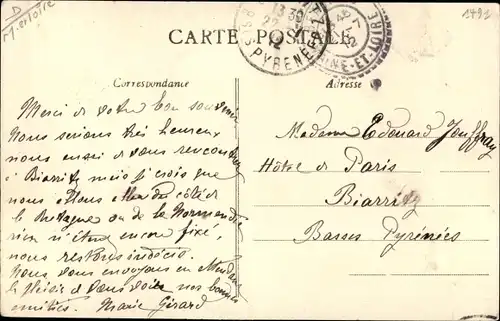 D
M-et-Loire
1491
CARTE POSTALE
Correspondance
Adresse
Merci de votre bon souvenir
Nous serions très heureux
nous aussi de vous rencontrer
à Biarritz mais je crois que
nous allons du côté de
la Bretagne ou de la Normandie
rien n'étant encore fixé,
nous restons indécis.
Nous vous envoyons en attendant
le plaisir de vous voir nos bonnes
amitiés. Marie Girard
Madame Edouard Jouffray
Hôtel de Paris
Biarritz
Basses Pyrénées
13 30
PYRENEES
NE-ET-LOIRE